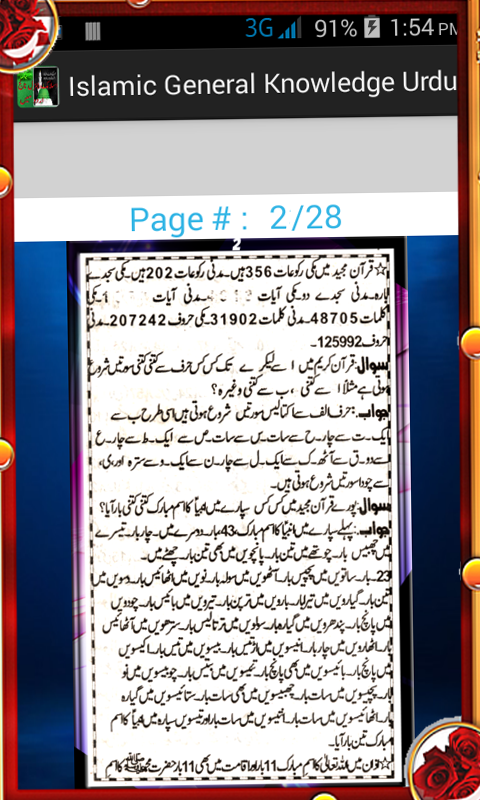 3G 91% 1:54 PM
Islamic General Knowledge Urdu
Page # : 2/28
2
☆قرآن مجید میں مکی رکوعات 356 ہیں۔ مدنی رکوعات 202 ہیں۔ مکی سجدے
بارہ۔ مدنی سجدے دو۔ مکی آیات مدنی آیات مکی
کلمات 48705۔ مدنی کلمات 31902۔ مکی حروف 207242۔ مدنی
حروف 125992۔
سوال: قرآن کریم میں ا سے لیکر ے تک کس کس حرف سے کتنی کتنی سورتیں شروع
ہوتی ہے مثلاً ا سے کتنی، ب سے کتنی وغیرہ؟
جواب: حرف الف سے اکتالیس سورتیں شروع ہوتی ہیں اسی طرح ب سے
ایک۔ ت سے چار۔ ح سے سات۔ س سے سات۔ ص سے ایک۔ ط سے چار۔ ع
سے دو۔ ق سے آٹھ۔ ک سے ایک۔ ل سے چار۔ ن سے ایک۔ و سے سترہ اور، ی،
سے چودا سورتیں شروع ہوتی ہیں۔
سوال: پورے قرآن مجید میں کس کس سپارے میں انبیاؑ کا اسم مبارک کتنی کتنی بار آیا؟
جواب: پہلے سپارے میں انبیاؑ کا اسم مبارک 43، بار۔ دوسرے میں۔ چار بار۔ تیسرے
میں چھبیس بار۔ چوتھے میں تین بار۔ پانچویں میں بھی تین بار۔ چھٹے میں۔
23۔ بار۔ ساتویں میں پچیس بار۔ آٹھویں میں سولہ بار۔ نویں میں اٹھائیس بار۔ دسویں میں
تین بار۔ گیارویں میں تیرا بار۔ بارویں میں ترپن بار۔ تیرویں میں بائیس بار۔ چودویں
میں پانچ بار۔ پندرھویں میں گیارہ بار۔ سولویں میں ترتالیس بار۔ سترھویں میں آٹھائیس
بار۔ اٹھارویں میں چار بار۔ انیسویں میں اڑتیس بار۔ بیسویں میں تیس بار۔ اکیسویں
میں پانچ بار۔ بائیسویں میں بھی پانچ بار۔ تیسویں میں سیتیس بار۔ چوبیسویں میں نو
بار۔ پچیسویں میں سات بار۔ چھبیسویں میں بھی سات بار۔ ستائیسویں میں گیارہ
بار۔ اٹھائیسویں میں سات بار۔ انتیسویں میں سات بار اور تیسویں سپارہ میں انبیاؑ کا اسم
مبارک تین بار آیا۔
☆ اذان میں اللہ تعالیٰ کا اسم مبارک 11 بار اور اقامت میں بھی 11 بار حضرت محمد ﷺ کا اسم